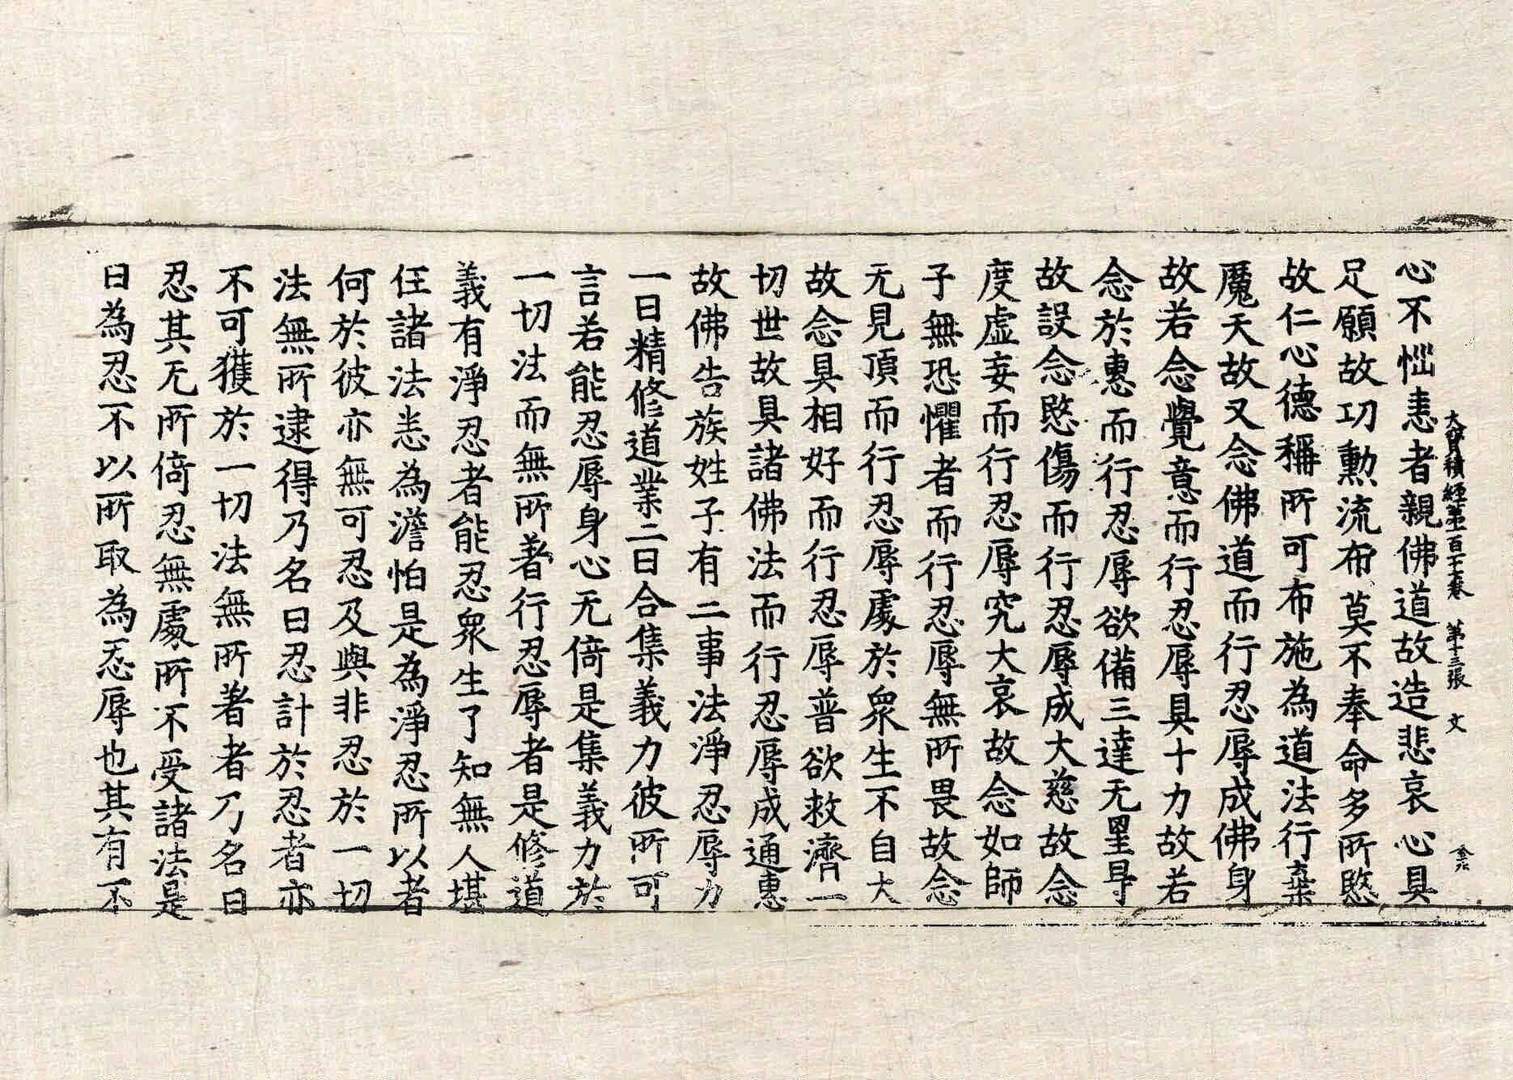 大寶積經第一百十七卷　第十三張　文
心不怯恚者親佛道故造悲哀心具
足願故功勳流布莫不奉命多所愍
故仁心德稱所可布施為道法行棄
魔天故又念佛道而行忍辱成佛身
故若念覺意而行忍辱具十力故若
念於惠而行忍辱欲備三達无罣㝵
故設念愍傷而行忍辱成大慈故念
度虛妄而行忍辱究大哀故念如師
子無恐懼者而行忍辱無所畏故念
无見頂而行忍辱處於衆生不自大
故念具相好而行忍辱普欲救濟一
切世故具諸佛法而行忍辱成通惠
故佛告族姓子有二事法淨忍辱力
一曰精修道業二曰合集義力彼所可
言若能忍辱身心无倚是集義力於
一切法而無所著行忍辱者是修道
義有淨忍者能忍衆生了知無人堪
任諸法恙為澹怕是為淨忍所以者
何於彼亦無可忍及與非忍於一切
法無所逮得乃名曰忍計於忍者亦
不可獲於一切法無所著者乃名曰
忍其无所倚忍無處所不受諸法是
曰為忍不以所取為忍辱也其有不